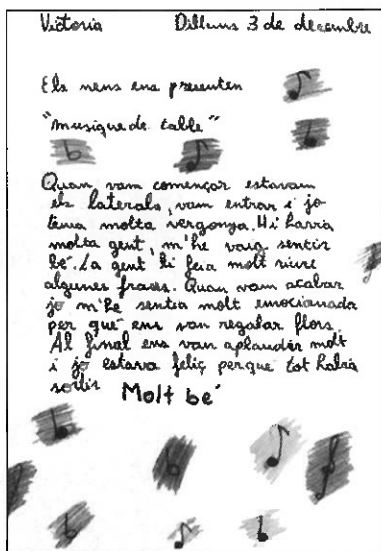 Victoria Dilluns 3 de decembre
Els nens ens presenten
"musique de table"
Quan vam començar estavam
els laterals, vam entrar i jo
tenia molta vergonya. Hi havia
molta gent, m'he vaig sentir
bé. La gent li feia molt riure
algunes frases. Quan vam acabar
jo m'he sentia molt emocionada
per què ens van regalar flors.
Al final ens van aplaudir molt
i jo estava feliç perque tot habia
sortit Molt bé